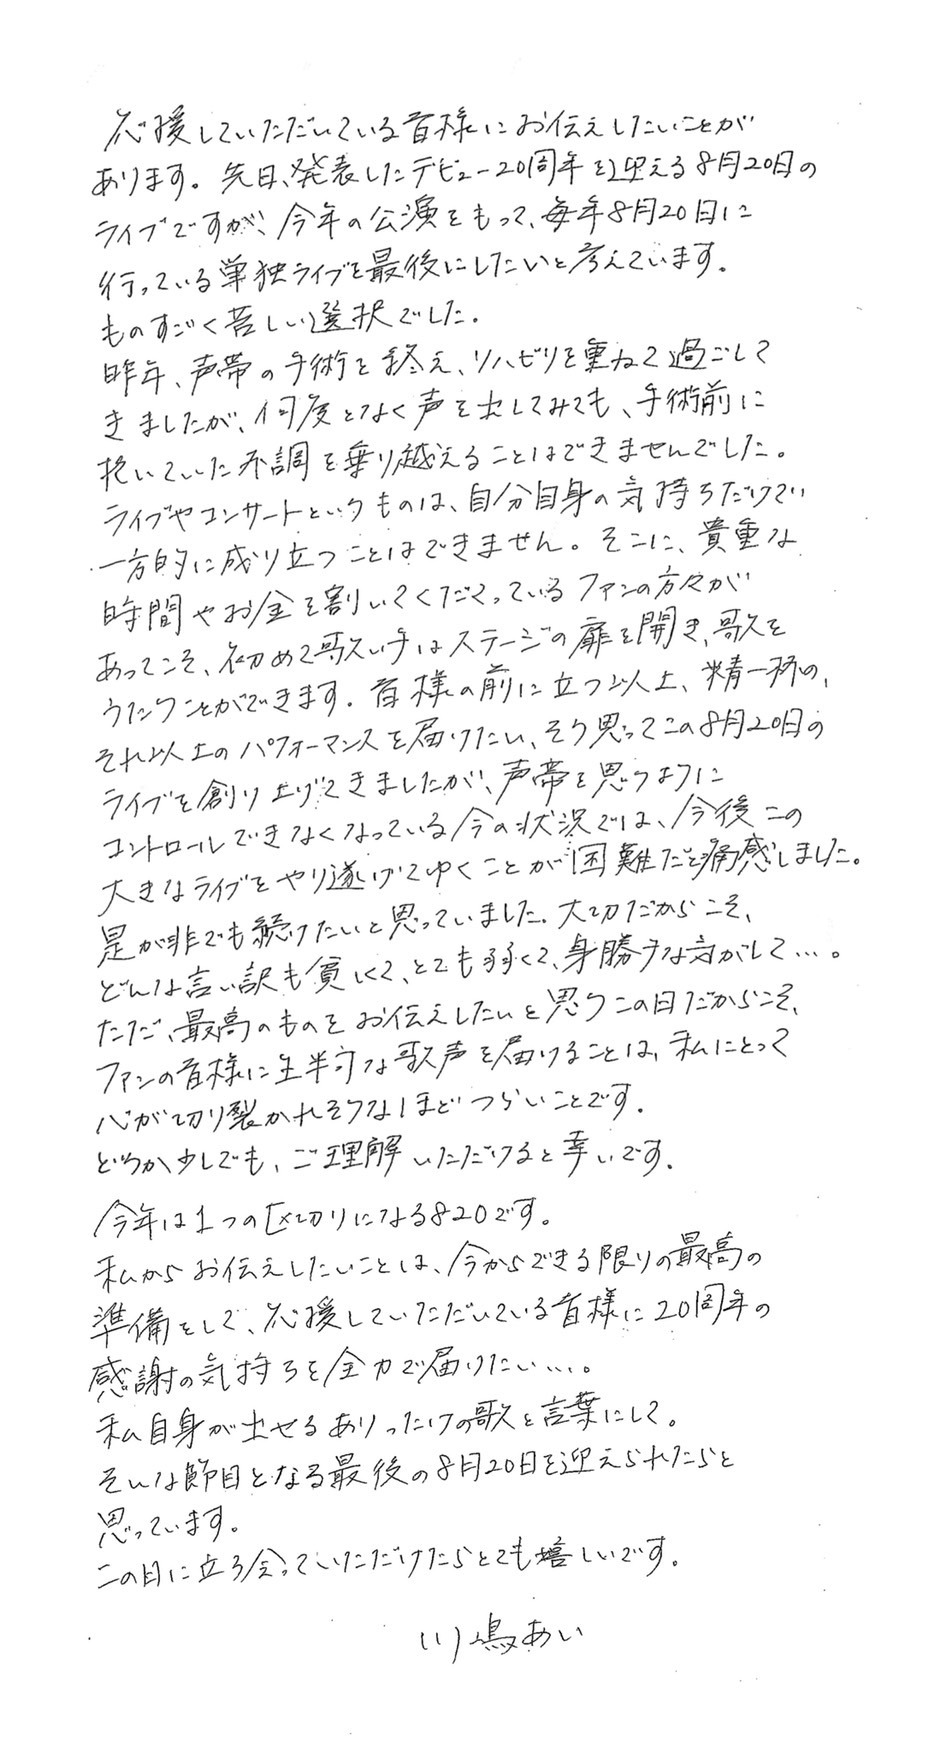 応援していただいている皆様にお伝えしたいことが
あります。先日、発表したデビュー20周年を迎える8月20日の
ライブですが、今年の公演をもって、毎年8月20日に
行っている単独ライブを最後にしたいと考えています。
ものすごく苦しい選択でした。
昨年、声帯の手術を終え、リハビリを重ねて過ごして
きましたが、何度となく声を出してみても、手術前に
抱いていた不調を乗り越えることはできませんでした。
ライブやコンサートというものは、自分自身の気持ちだけで
一方的に成り立つことはできません。そこに、貴重な
時間やお金を割いてくださっているファンの方々が
あってこそ、初めて歌い手はステージの扉を開き、歌を
うたうことができます。皆様の前に立つ以上、精一杯の、
それ以上のパフォーマンスを届けたい、そう思ってこの8月20日の
ライブを創り上げてきましたが、声帯を思うように
コントロールできなくなっている今の状況では、今後この
大きなライブをやり遂げてゆくことが困難だと痛感しました。
是が非でも続けたいと思っていました。大切だからこそ、
どんな言い訳も貧しくて、とても弱くて、身勝手な気がして…。
ただ、最高のものをお伝えしたいと思うこの日だからこそ、
ファンの皆様に生半可な歌声を届けることは、私にとって
心が切り裂かれそうなほどつらいことです。
どうか少しでも、ご理解いただけると幸いです。
今年は1つの区切りになる820です。
私からお伝えしたいことは、今からできる限りの最高の
準備をして、応援していただいている皆様に20周年の
感謝の気持ちを全力で届けたい…。
私自身が出せるありったけの歌と言葉にして。
そんな節目となる最後の8月20日を迎えられたらと
思っています。
この日に立ち会っていただけたらとても嬉しいです。
川嶋あい